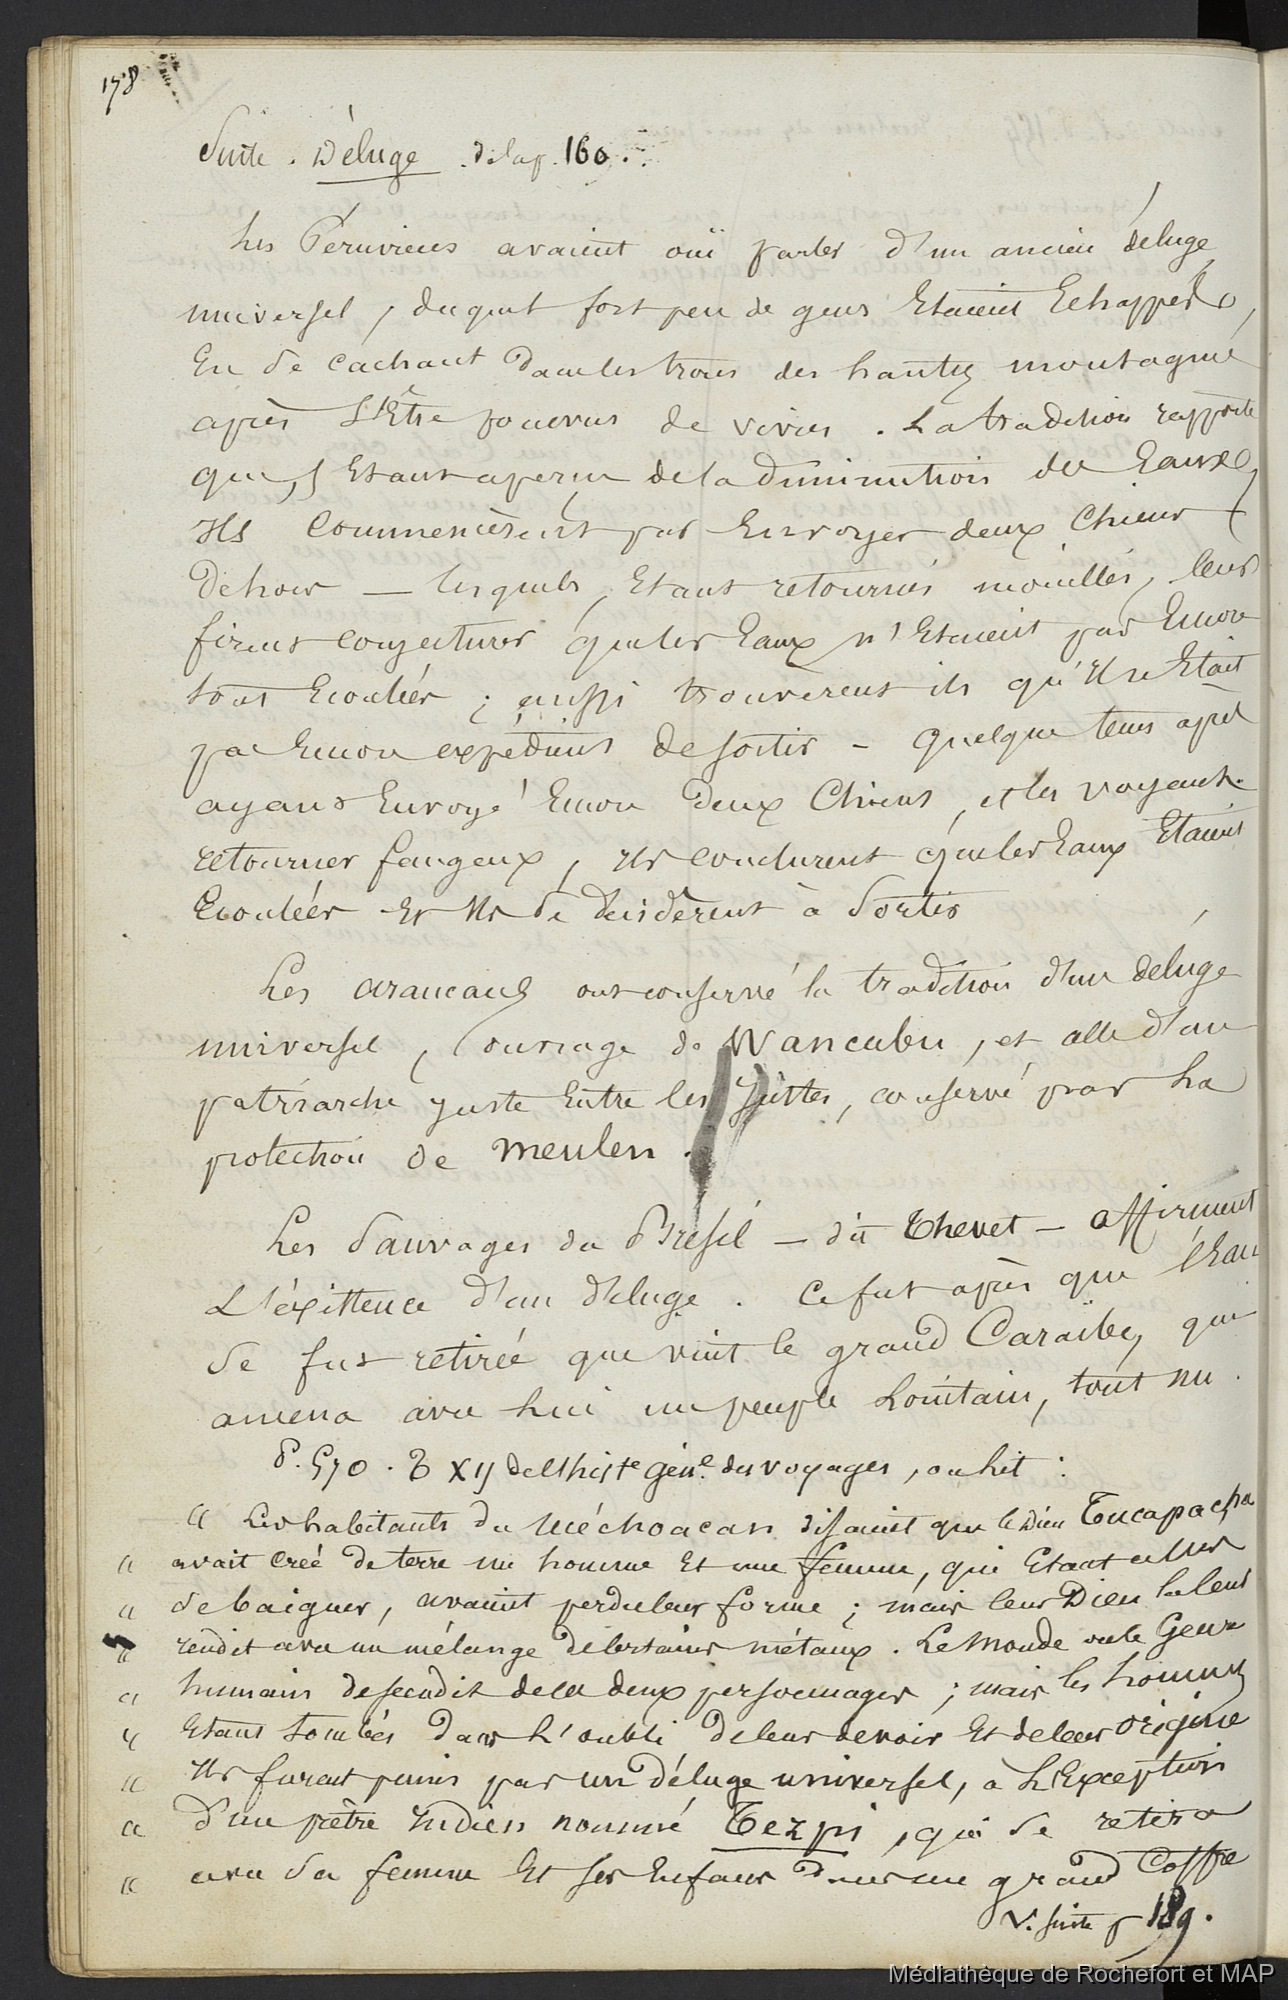 178
Suite . Déluge . de la p. 160 .
Les Péruviens avaient ouï parler d'un ancien déluge
universel, duquel fort peu de gens Etaient Echappés,
En se cachant dans les trous des hautes montagnes
après s'Etre pourvus de vivres . La tradition rapporte
que, s'Etant aperçu de la diminution des Eaux,
Ils Commencèrent par Envoyer deux Chiens
dehors — lesquels, Etant retournés mouillés, leur
firent conjecturer que les Eaux n'Etaient pas Encore
tout Ecoulées ; aussi trouvèrent ils qu'Il n'Etait
pas Encore expédient de sortir – quelque tems après
ayant Envoyé Encore deux Chiens, et les voyant
retourner fangeux, Ils conclurent que les Eaux Etaient
Ecoulées Et Ils se décidèrent à Sortir
Les araucans ont conservé la tradition d'un déluge
universel, (ouvrage de Wancubu, et celle d'un
patriarche juste Entre les justes, conservé par La
protection de Meulen .
Les Sauvages du Brésil – dit Thevet – affirment
L'éxistence d'un déluge . Ce fut après que l'Eau
se fut retirée que vint le grand Caraïbe, qui
amena avec lui un peuple Lointain, tout nu .
P. 570 . T XII de l'histe génle des voyages, on lit :
« Les habitants du Méchoacan disaient que le Dieu Tucapacha
« avait créé de terre un homme Et une femme, qui Etant allés
« se baigner, avaient perdu leur forme ; mais leur Dieu la leur
« rendit avec un mélange de Certains métaux . Le Monde ou le Genre
« humain descendit de ces deux personnages ; mais les hommes
« Etant tombés dans L'oubli de leur devoir Et de leur origine
« Ils furent punis par un déluge universel, à L'Exception
« d'un prêtre Indien nommé Tezpi, qui se retira
« avec sa femme Et ses Enfans dans un grand Coffre
V. suite p 189.
Médiathèque de Rochefort et MAP